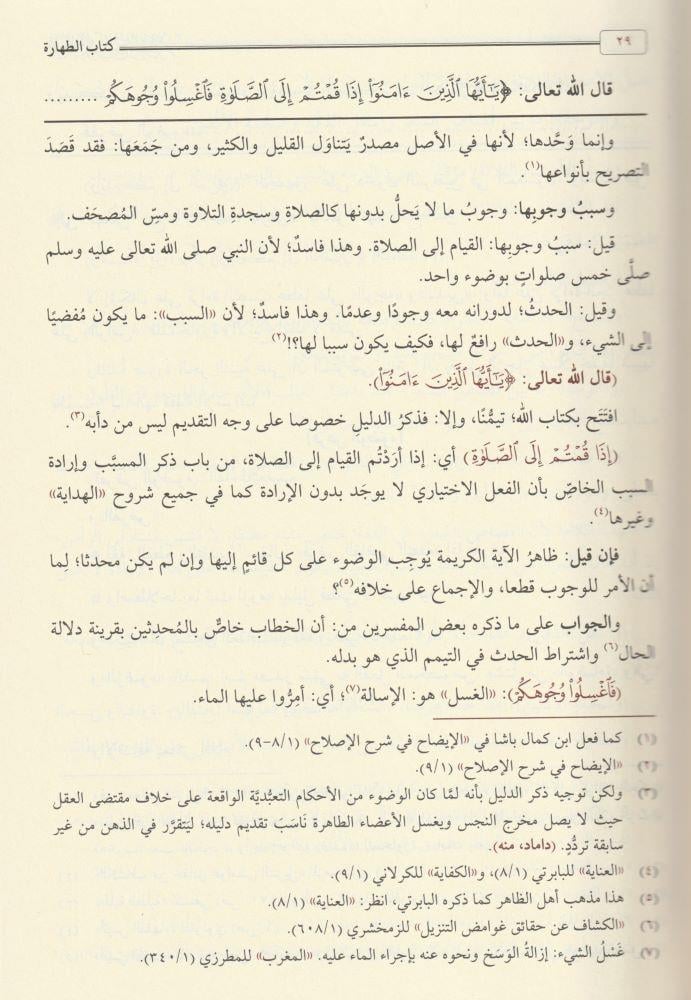 ٢٩
كتاب الطهارة
قال الله تعالى: ﴿يَٰٓأَيُّهَا ٱلَّذِينَ ءَامَنُوٓاْ إِذَا قُمۡتُمۡ إِلَى ٱلصَّلَوٰةِ فَٱغۡسِلُواْ وُجُوهَكُمۡ .........
وإنما وَحَّدها؛ لأنها في الأصل مصدرٌ يَتناوَل القليل والكثير، ومن جَمَعَها: فقد قَصَدَ
التصريح بأنواعها(١).
وسببُ وجوبِها: وجوبُ ما لا يَحلُّ بدونها كالصلاةِ وسجدةِ التلاوة ومسِّ المُصحَف.
قيل: سببُ وجوبِها: القيام إلى الصلاة. وهذا فاسدٌ؛ لأن النبي صلى الله تعالى عليه وسلم
صلَّى خمس صلواتٍ بوضوء واحد.
وقيل: الحدثُ؛ لدورانه معه وجودًا وعدمًا. وهذا فاسدٌ؛ لأن «السبب»: ما يكون مُفضيًا
إلى الشيء، و«الحدث» رافعٌ لها، فكيف يكون سببا لها؟!(٢)
(قال الله تعالى: ﴿يَٰٓأَيُّهَا ٱلَّذِينَ ءَامَنُوٓاْ).
افتَتَح بكتاب الله؛ تيمُّنًا، وإلا: فذكرُ الدليلِ خصوصا على وجه التقديم ليس من دأبه(٣).
(إِذَا قُمۡتُمۡ إِلَى ٱلصَّلَوٰةِ) أي: إذا أرَدْتُم القيام إلى الصلاة، من باب ذكر المسبَّب وإرادة
السبب الخاصِّ بأن الفعل الاختياري لا يوجَد بدون الإرادة كما في جميع شروح «الهداية»
وغيرها(٤).
فإن قيل: ظاهرُ الآية الكريمة يُوجِب الوضوء على كل قائمٍ إليها وإن لم يكن محدثا؛ لِما
أن الأمر للوجوب قطعا، والإجماع على خلافه(٥)؟
والجواب على ما ذكره بعض المفسرين من: أن الخطاب خاصٌّ بالمُحدِثين بقرينة دلالة
الحال(٦) واشتراط الحدث في التيمم الذي هو بدله.
(فَٱغۡسِلُواْ وُجُوهَكُمۡ): «الغسل» هو: الإسالة(٧)؛ أي: أمِرُّوا عليها الماء.
(١) كما فعل ابن كمال باشا في «الإيضاح في شرح الإصلاح» (٨/١-٩).
(٢) «الإيضاح في شرح الإصلاح» (٩/١).
(٣) ولكن توجيه ذكر الدليل بأنه لمَّا كان الوضوء من الأحكام التعبُّديَّة الواقعة على خلاف مقتضى العقل
حيث لا يصل مخرج النجس ويغسل الأعضاء الطاهرة نَاسَبَ تقديم دليله؛ ليَتقرَّر في الذهن من غير
سابقة تردُّدٍ. (داماد، منه).
(٤) «العناية» للبابرتي (٨/١)، و«الكفاية» للكرلاني (٩/١).
(٥) هذا مذهب أهل الظاهر كما ذكره البابرتي، انظر: «العناية» (٨/١).
(٦) «الكشاف عن حقائق غوامض التنزيل» للزمخشري (٦٠٨/١).
(٧) غَسْلُ الشيء: إزالةُ الوَسَخ ونحوه عنه بإجراء الماء عليه. «المغرب» للمطرزي (٣٤٠/١).